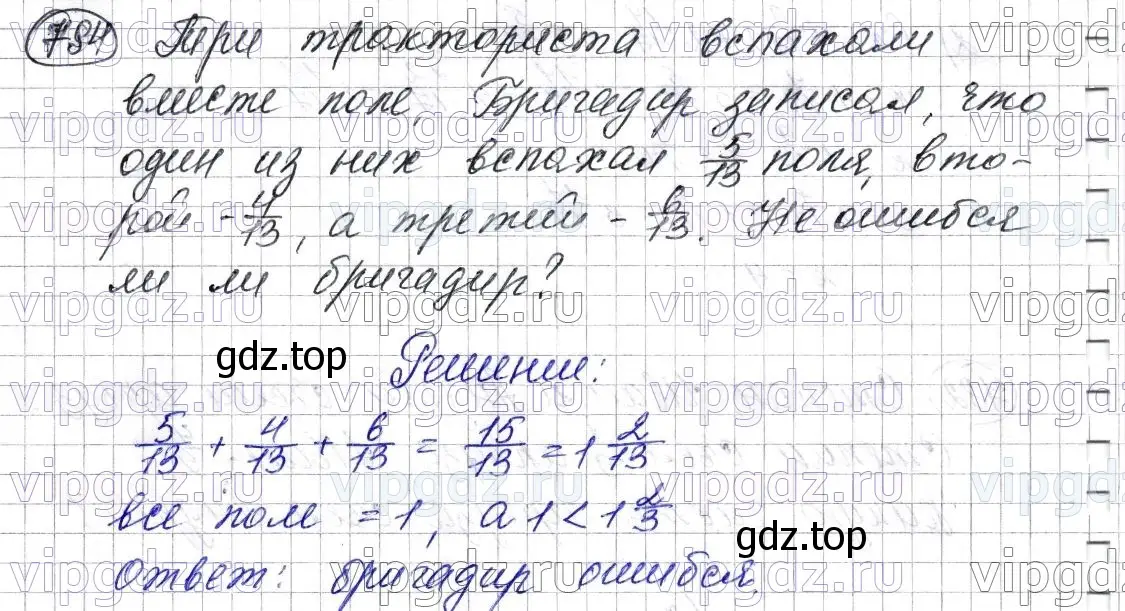 784 Три тракториста вспахали
вместе поле. Бригадир записал, что
один из них вспахал 5/13 поля, вто-
рой - 4/13, а третий - 6/13. Не ошибся
ли ли бригадир?
gdz.top Решение:
5/13 + 4/13 + 6/13 = 15/13 = 1 2/13
все поле = 1, а 1 < 1 2/3
gdz.top
Ответ: бригадир ошибся.
vipgdz.ru